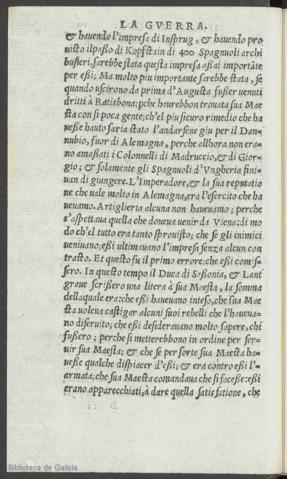 LA GVERRA.
& hauendo l'impresa di Insprug, & hauendo pro
uisto il passo di Kopfstain di 400 Spagnuoli archi
busieri, sarebbe stata questa impresa assai importãte
per essi; Ma molto piu importante sarebbe stata, se
quando uscirono da prima d'Augusta fusser uenuti
dritti à Ratisbona; pche haurebbon trouata sua Mae
sta con si poca gente; ch'el piu sicuro rimedio che ha
uesse hauto saria stato l'andarsene giu per il Dan-
nubio, fuor di Alemagna, perche allhora non era-
no amassati i Colonnelli di Madruccio, & di Gior-
gio; & solamente gli Spagnuoli d'Vngheria fini-
uan di giungere. L'Imperadore, & la sua reputatio
ne che uale molto in Alemagna, era l'esercito che ha
ueuamo. Artiglieria alcuna non haueuamo; perche
s'aspettaua quella che doueua uenir da Viena: di mo
do ch'el tutto era tanto sprouisto; che se gli inimici
ueniuano; essi ultimauano l'impresa senza alcun con
trasto. Et questo fu il primo errore, che essi comis-
sero. In questo tempo il Duca di Sassonia, & Lant
graue scrissero una litera à sua Maesta, la somma
della quale era: che essi haueuano inteso, che sua Mae
sta uoleua castigar alcuni suoi rebelli che l'haueua-
no diseruito; che essi desiderauano molto sapere, chi
fussero; perche si metterebbono in ordine per ser-
uir sua Maesta; & che se per sorte sua Maesta ha-
uesse qualche dispiacer d'essi; & era contro essi l'-
armata; che sua Maesta comandaua che si facesse: essi
erano apparecchiati, à dare quella satisfatione, che
Biblioteca de Galicia